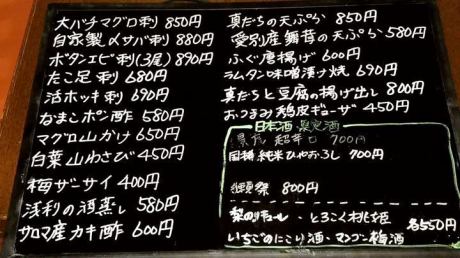 大バチマグロ刺 850円
自家製〆サバ刺 880円
ボタンエビ刺(3尾) 890円
たこ足刺 680円
活ホッキ刺 690円
なまこポン酢 580円
マグロ山かけ 650円
白葉山わさび 450円
梅ザーサイ 400円
浅利の酒蒸し 580円
サロマ産カキ酢 600円
真だちの天ぷら 850円
愛別産舞茸の天ぷら 580円
ふぐ唐揚げ 600円
ラムタン味噌漬け焼 690円
真だちと豆腐の揚げ出し 800円
おつまみ鶏皮ギョーザ 450円
日本酒 限定酒
超辛口 700円
国稀 純米ひやおろし 700円
獺祭 800円
梨のリキュール・とろこく桃姫 各550円
いちごのにごり酒・マンゴー梅酒